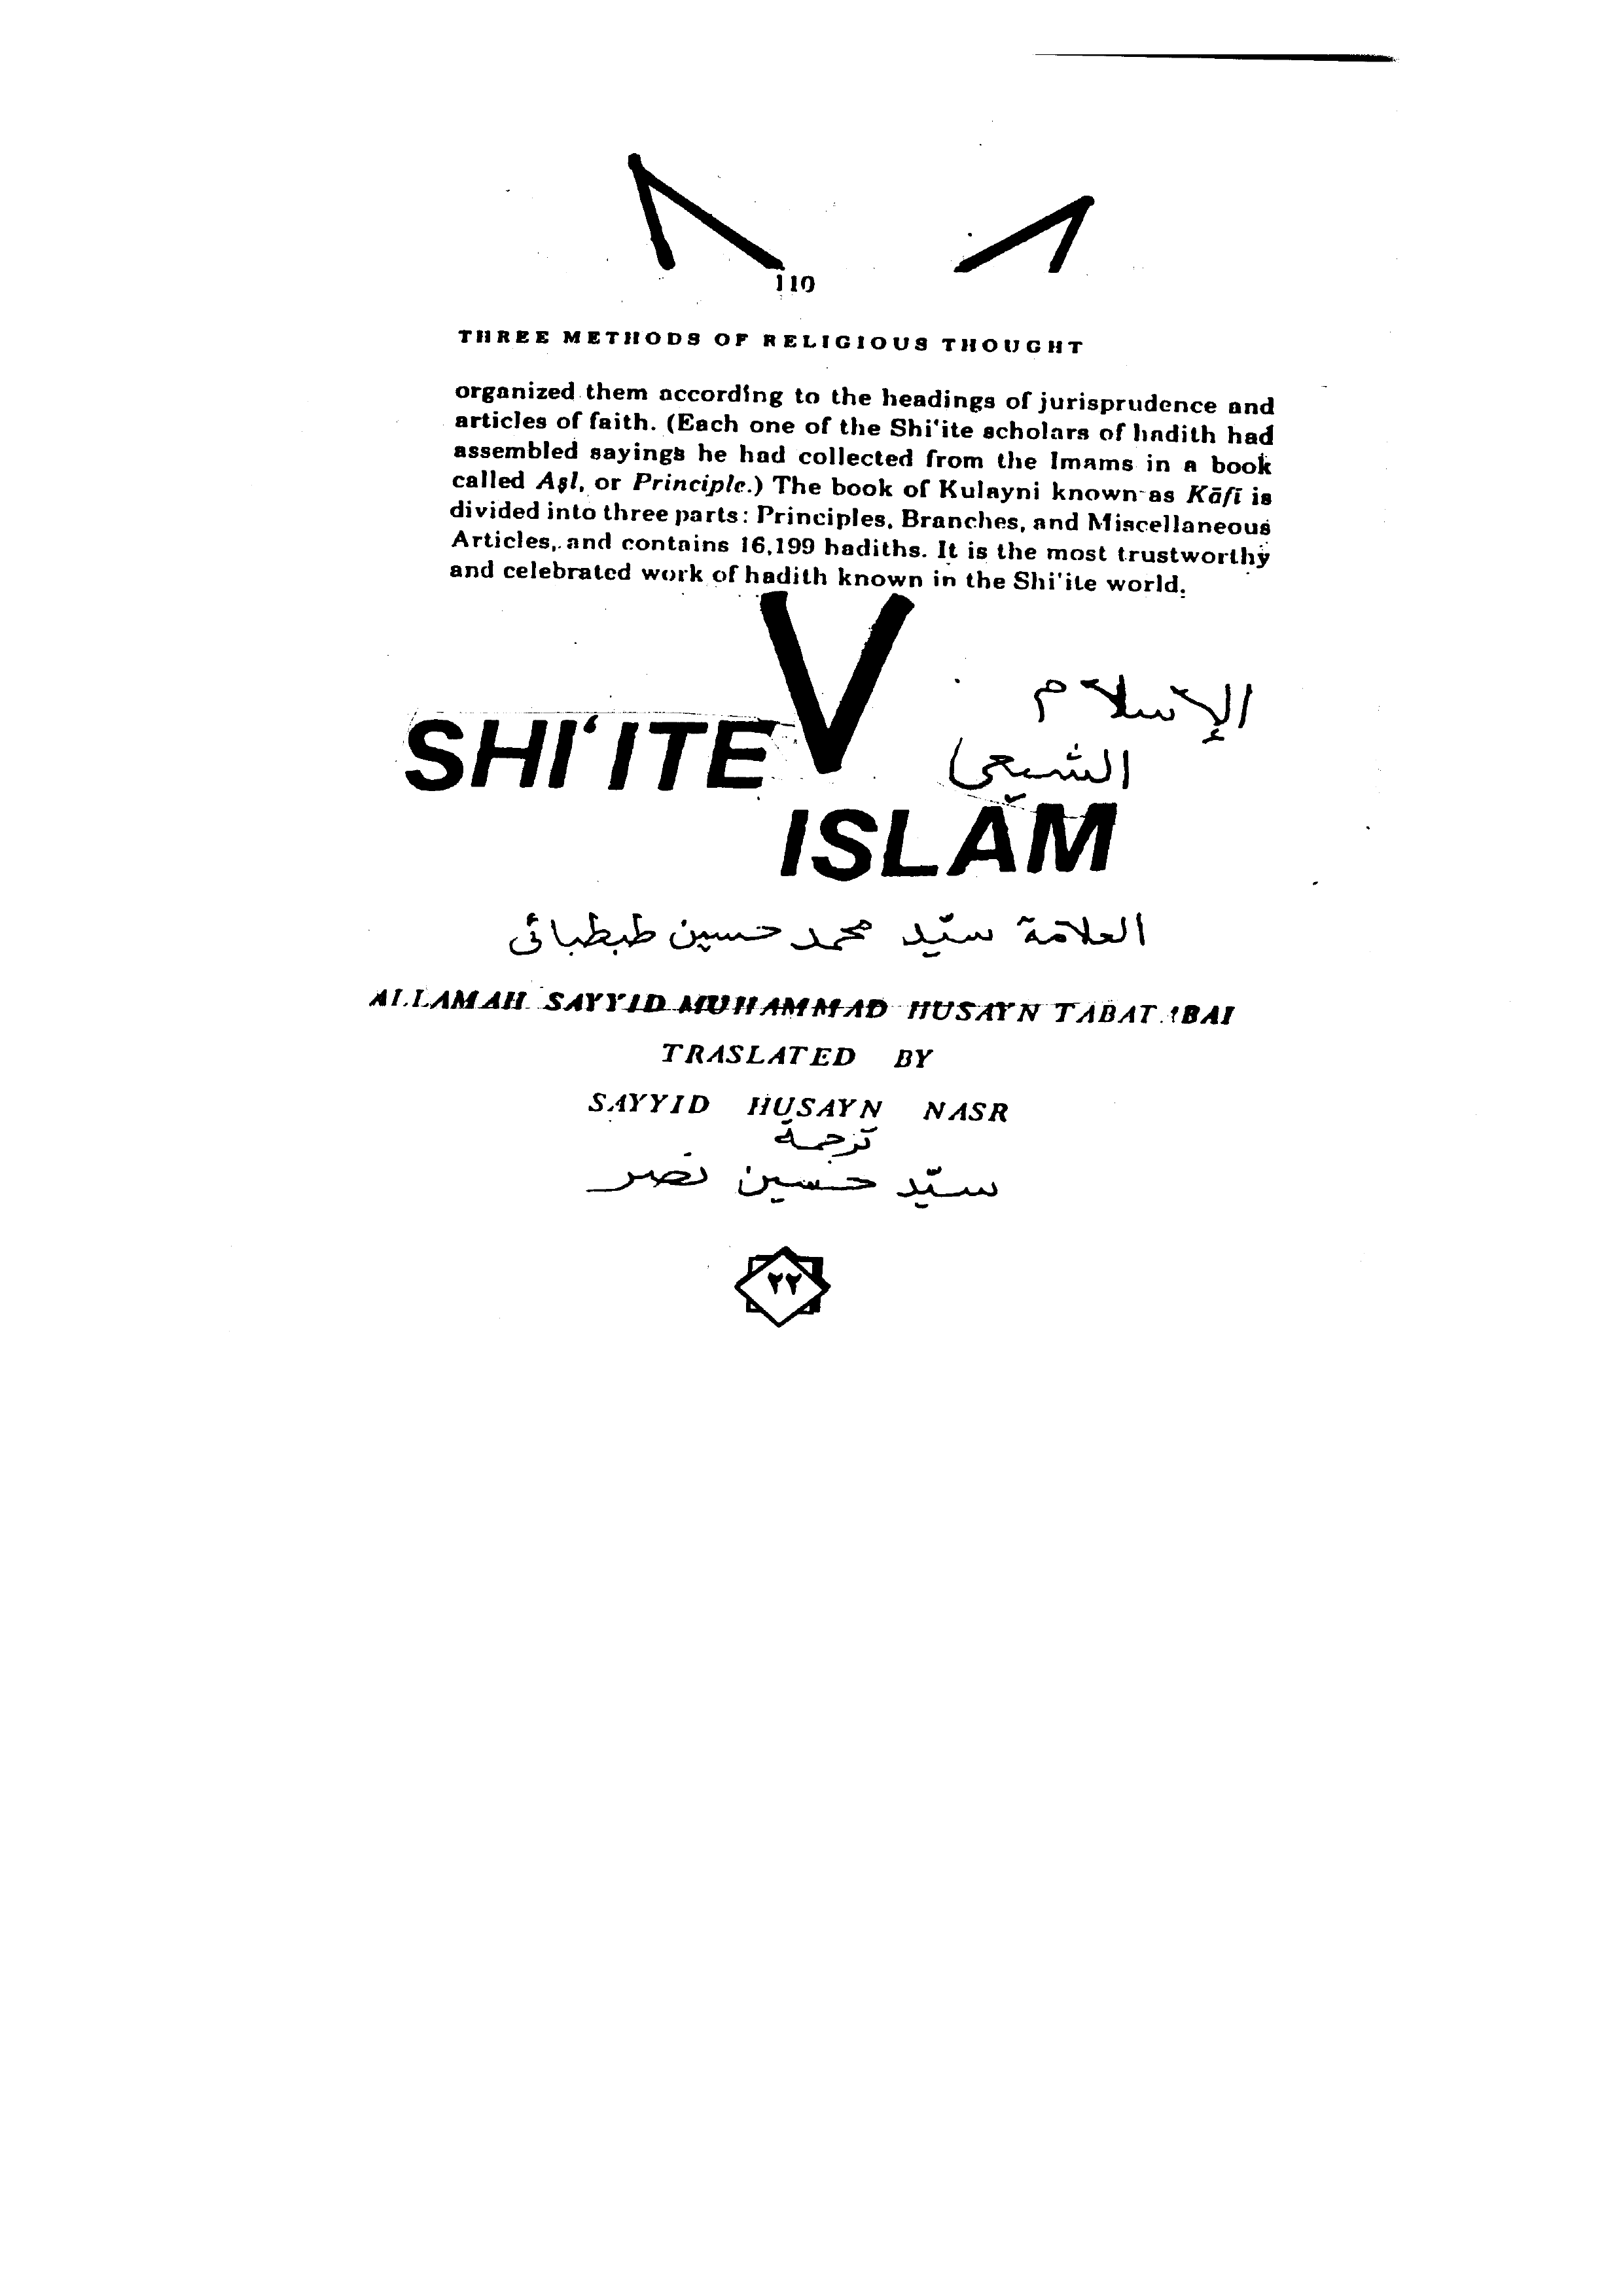 110
THREE METHODS OF RELIGIOUS THOUGHT
organized them according to the headings of jurisprudence and
articles of faith. (Each one of the Shi'ite scholars of hadith had
assembled sayings he had collected from the Imams in a book
called Aṣl, or Principle.) The book of Kulayni known as Kāfī is
divided into three parts: Principles, Branches, and Miscellaneous
Articles, and contains 16,199 hadiths. It is the most trustworthy
and celebrated work of hadith known in the Shi'ite world.
الإسلام
الشيعي
SHI‘ITE
ISLAM
العلامة سيّد محمد حسين طبطبائی
ALLAMAH SAYYID MUHAMMAD HUSAYN TABATABAI
TRASLATED BY
SAYYID HUSAYN NASR
ترجمة
سيّد حسين نصر
٢٢